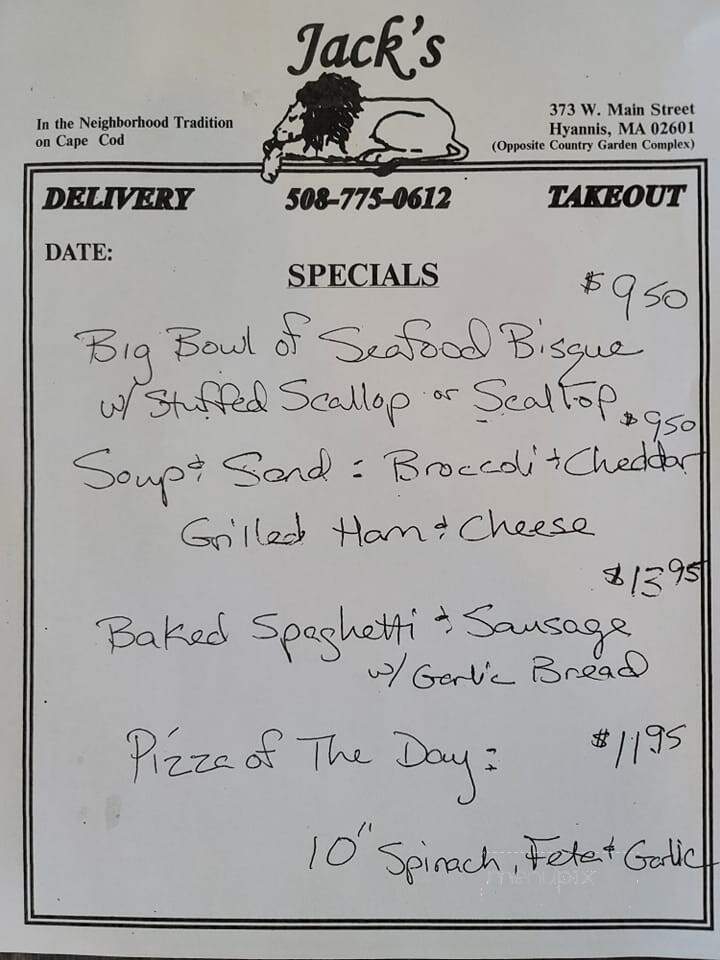 Jack's
In the Neighborhood Tradition
on Cape Cod
373 W. Main Street
Hyannis, MA 02601
(Opposite Country Garden Complex)
DELIVERY 508-775-0612 TAKEOUT
DATE:
SPECIALS
$950
Big Bowl of Seafood Bisque
w/ Stuffed Scallop or Scallop
$950
Soup & Sand : Broccoli + Cheddar
Grilled Ham & Cheese
$1395
Baked Spaghetti & Sausage
w/ Garlic Bread
Pizza of The Day: $1195
10" Spinach, Feta & Garlic
menupix